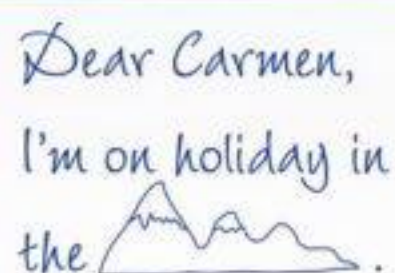 Dear Carmen,
I'm on holiday in
the .